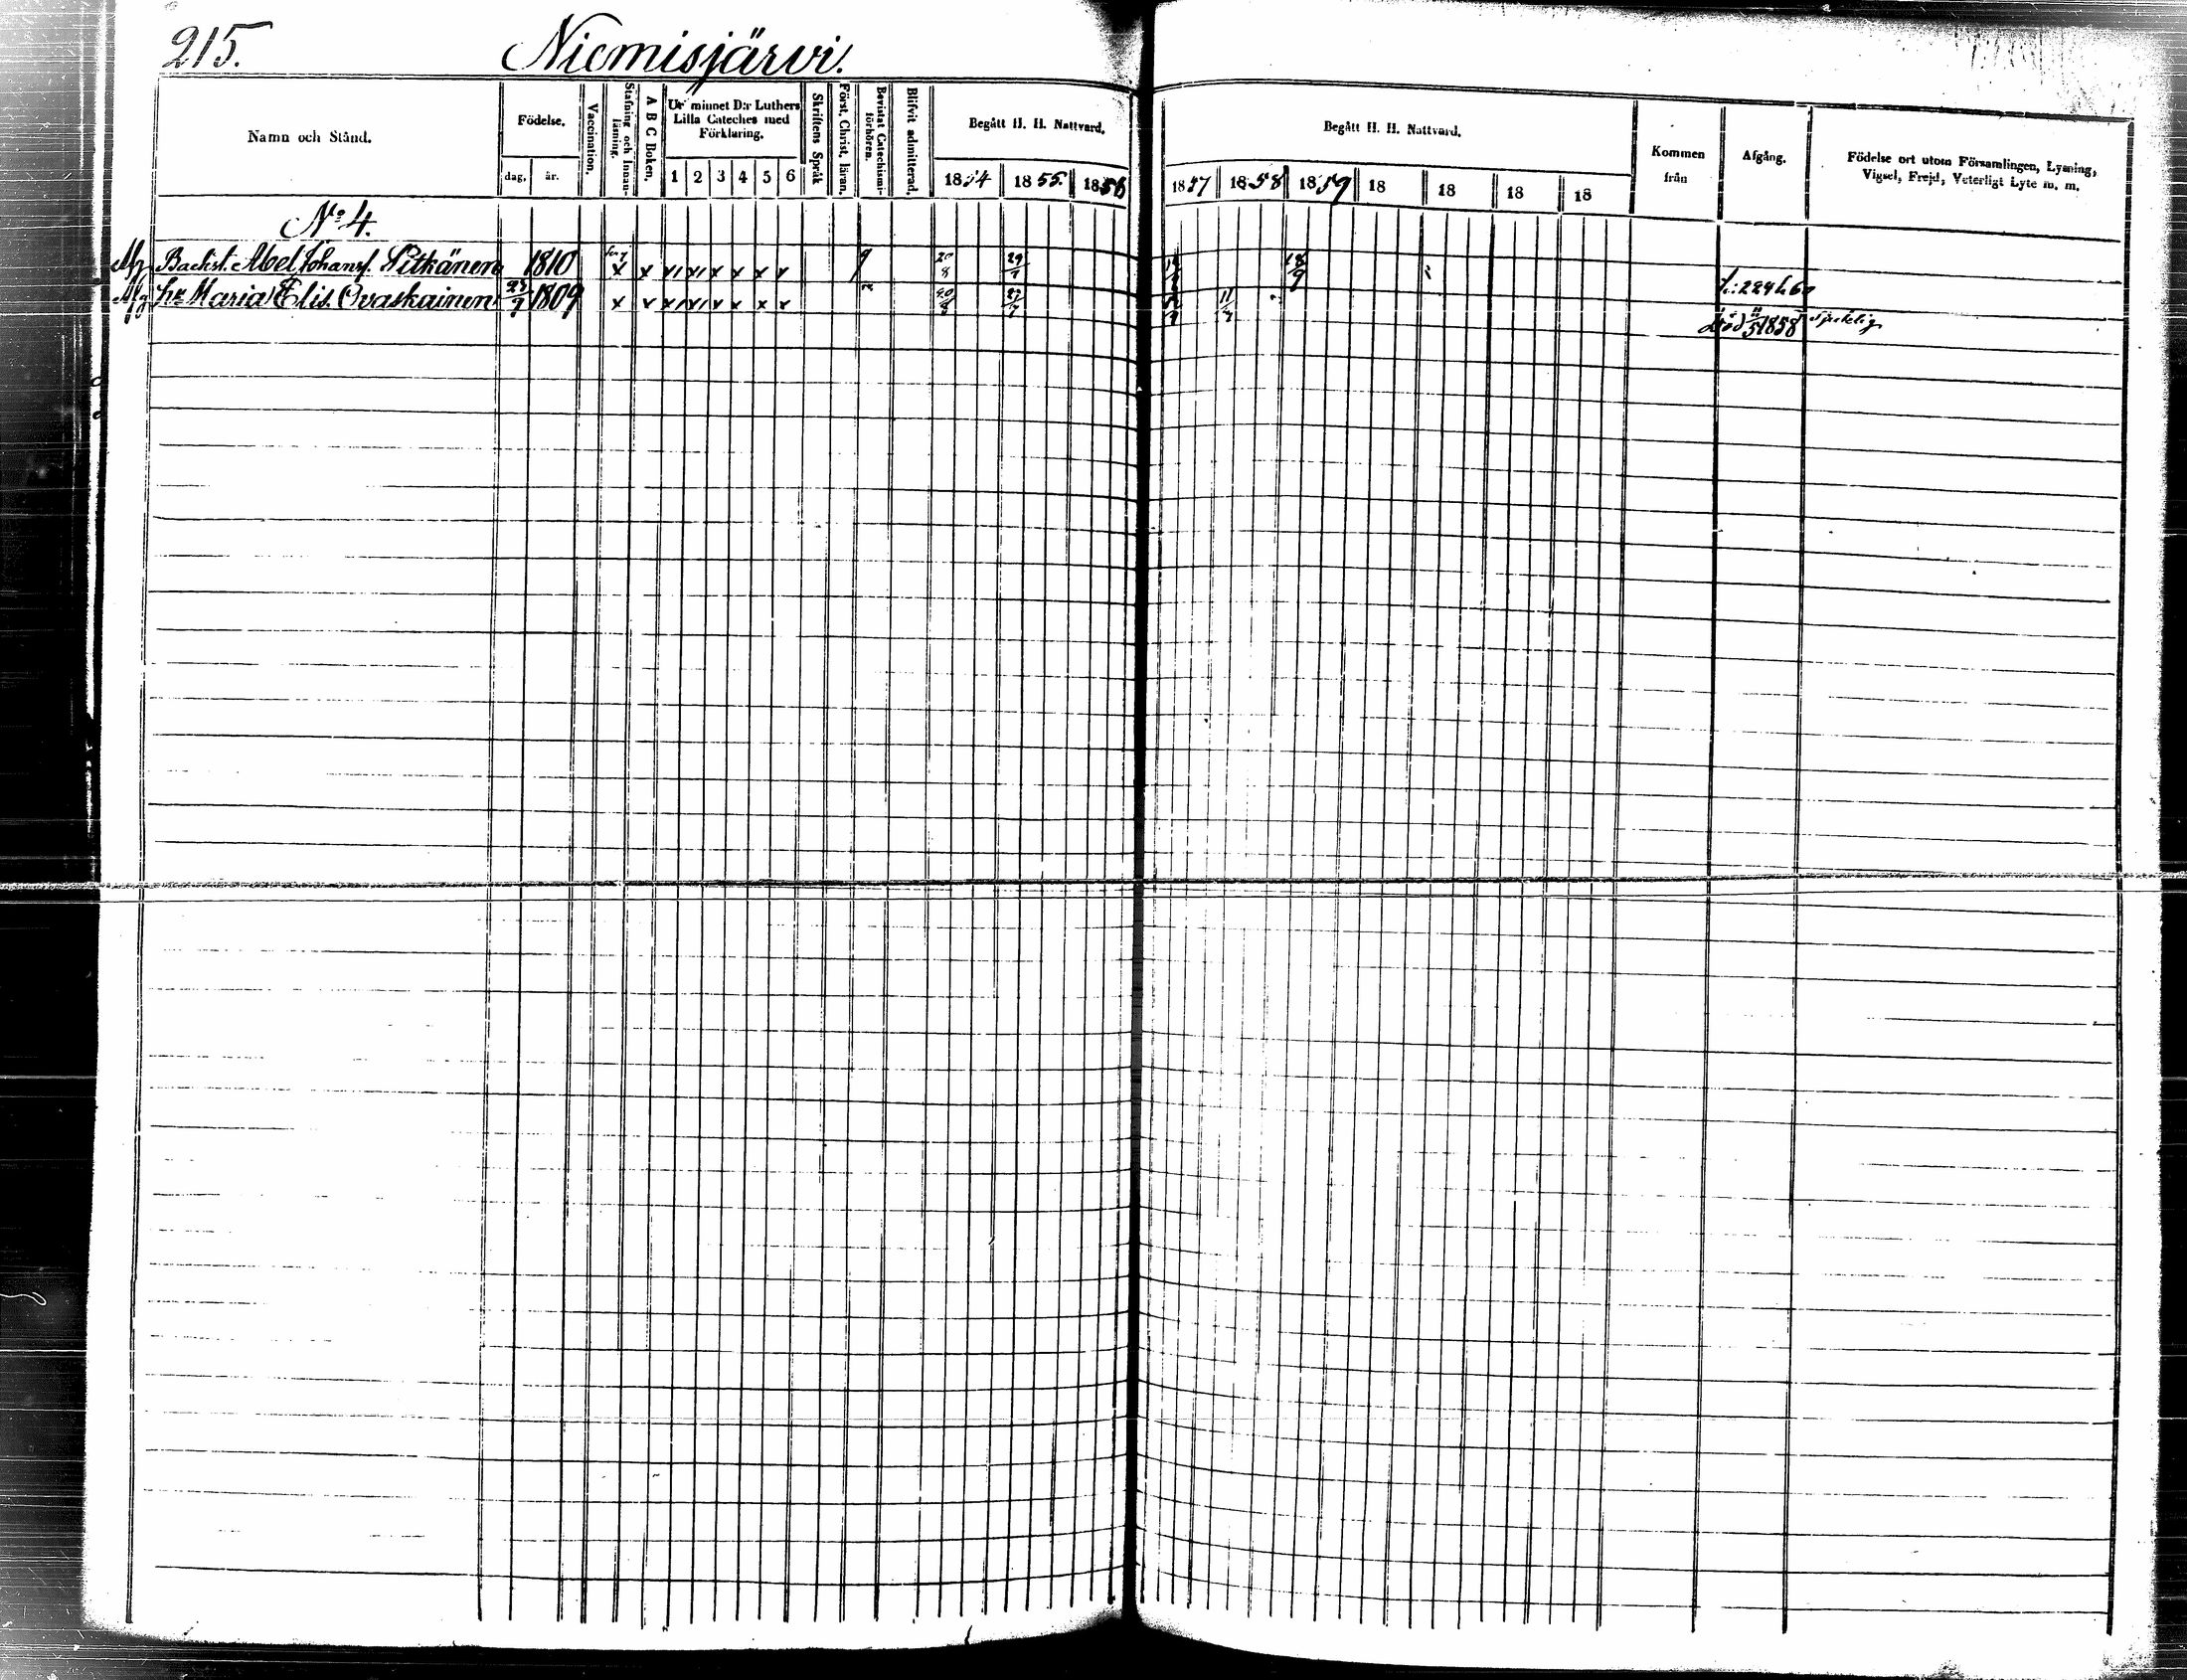 215. Niemisjärvi.
Namn och Stånd.
Födelse.
dag. år.
Vaccination.
Stafning och Innanläsning.
A B C Boken.
Ur minnet D:r Luthers Lilla Cateches med Förklaring.
1 2 3 4 5 6
Skriftens Språk
Först. Christ. läran.
Bevistat Catechismi-förhören.
Blifvit admitterad.
Begått H. H. Nattvard.
1854 1855. 1856
Begått H. H. Nattvard.
1857 1858 1859 18 18 18 18
Kommen från
Afgång.
Födelse ort utom Församlingen, Lysning, Vigsel, Frejd, Veterligt Lyte m. m.
No 4.
Backst. Abel Johansf. Pitkänen 1810 x x x x x x x x 20/8 29/7 18/9
hu Maria Elis. Ovaskainen 1809 x x x x x x x x 27/7 död 1858 Sjuklig